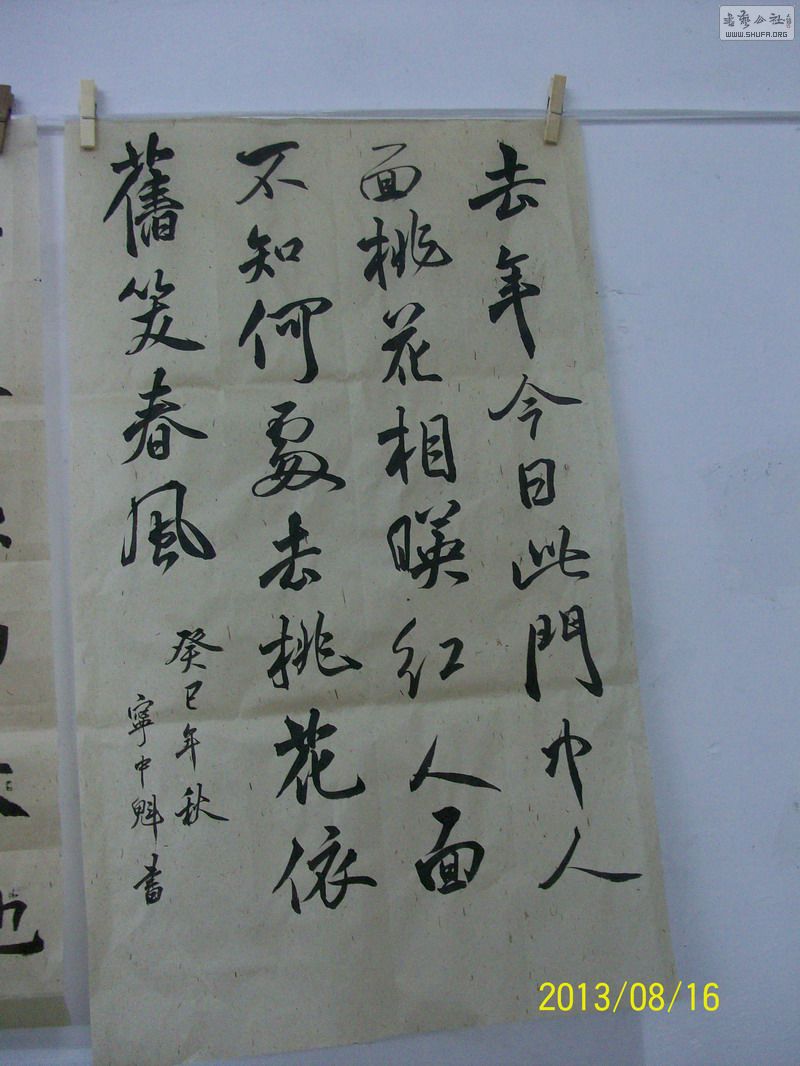 去年今日此門中人
面桃花相暎紅人面
不知何處去桃花依
舊笑春風
癸巳年秋
寧中魁書
書藝公社
WWW.SHUFA.ORG
2013/08/16